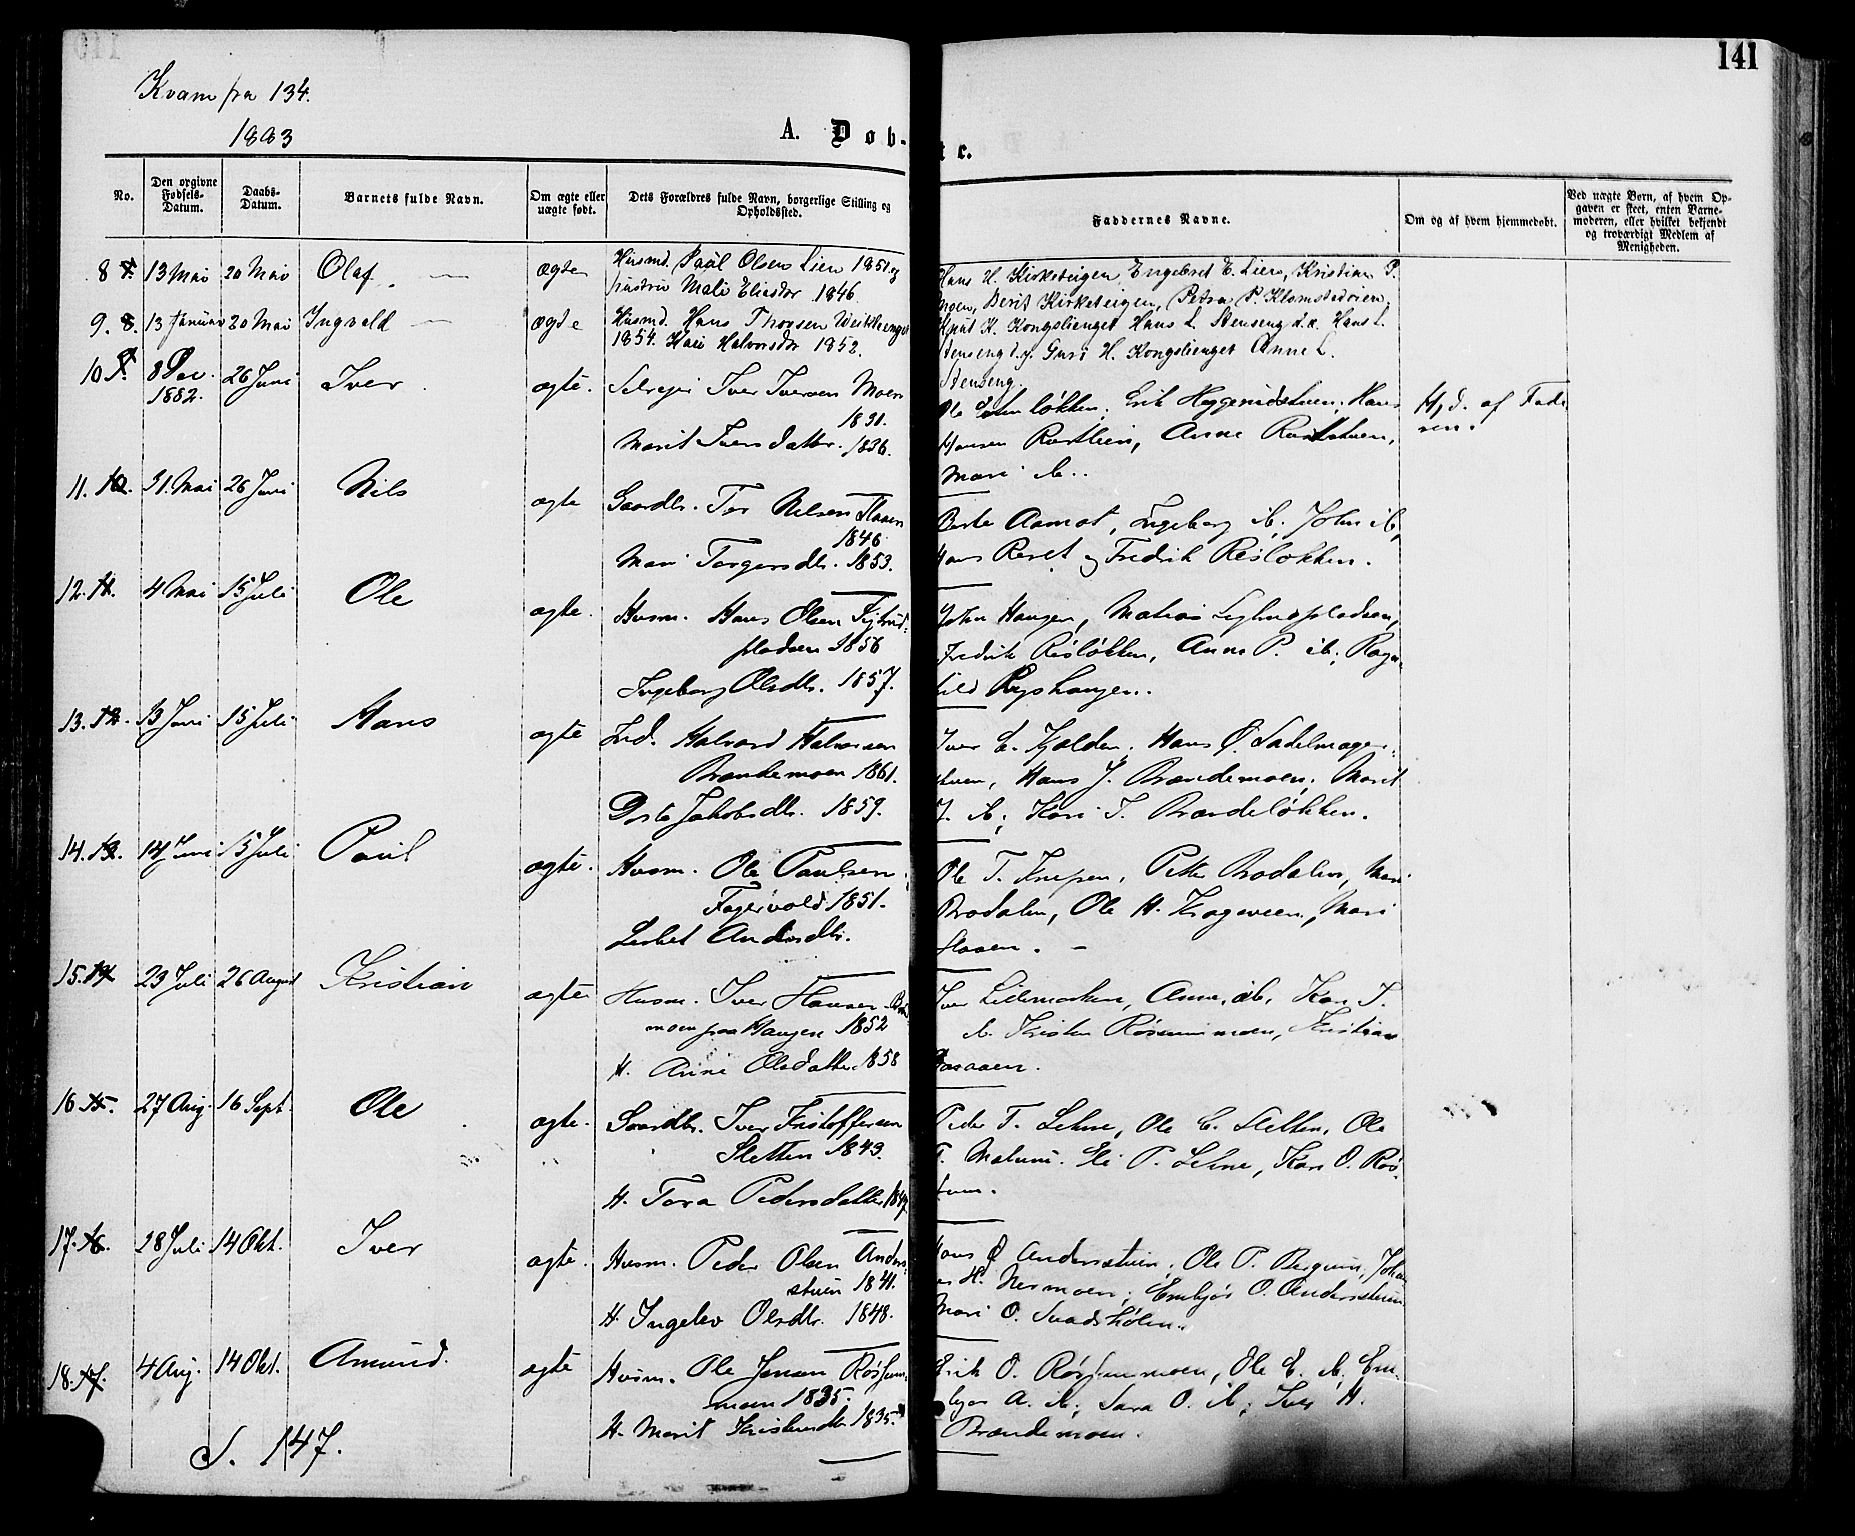 141
Kvam fra 134.
1883
A. Døb-
t c.
No.
Den opgivne Fødsels-Datum.
Daabs-Datum.
Barnets fulde Navn.
Om ægte eller uægte født.
Dets Forældres fulde Navn, borgerlige Stilling og Opholdssted.
Faddernes Navne.
Om og af hvem hjemmedøbt.
Ved uægte Børn, af hvem Opgaven er skeet, enten Barnemoderen, eller hvilket bekjendt og troværdigt Medlem af Menigheden.
8 13 Mai 20 Mai Olaf. — ægte Husmd. Paul Olsen Lien 1851 og
Hustru Mali Eliasdtr 1846.
Hans H. Kirksteigen, Engebret E. Lien, Kristian P.
moen, Berit Kirksteigen, Petra P. Klomstadøien.
9. 8. 13 Januar 20 Mai Ingvald — ægte Husmd. Hans Thorsen
1854. Kari Halvorsdtr 1852.
Knut K. Kongslienget Hans L. Stenseng d.æ. Hans L.
Stenseng d.y. Guri H. Kongslienget Anne L.
Stenseng.
10 8 Dec. 1882. 26 Juni Iver ægte. Selveier Iver Iversen Moen
1831.
Marit Iversdatter. 1836.
Ole løkken, Erik Heggerudstuen, Hans
Hansen Rustlien, Anne Ruststuen,
Mari ib..
Hjd. af Fade
ren.
11. 10. 31. Mai 26 Juni Nils ægte Gaardbr. Tor Nilsen Flaaen
1846
Mari Torgersdtr. 1853.
Berte Aamot, Ingeborg ib, John ib,
Hans Reret og Fredrik Resløkken.
12. 11. 4 Mai 15 Juli Ole ægte. Husm. Hans Olsen
pladsen 1856
Ingeborg Olsdtr. 1857.
John Haugen, Matias
Fredrik Resløkken, Anne P. ib, Ragn-
hild Ryshaugen.
13. 12. 13 Juni 15 Juli Hans ægte Ind. Halvard Halvorsen
Brændemoen 1861.
Dorte Jakobsdtr. 1859.
Iver E. Kjølden, Hans Ø. Sadelmager-
stuen, Hans J. Brændemoen, Marit
J. ib; Kari T. Brændeløkken.
14. 13. 14 Juni 15 Juli Paul ægte. Husm. Ole Paulsen
Fagervold 1851.
Lisbet Andersdtr.
Ole T. Knepen, Petter Brodalen, Mari
Brodalen, Ole H. Krageveen, Mari
Flaaen. —
15. 14 23 Juli 26 August Kristian ægte Husm. Iver Hansen
moen paa Haugen 1852
H. Anne Olsdatter 1858
Iver Lillemorken, Anne ib, Kari T.
ib. Kristen Røssummoen, Kristian
16. 15. 27 Aug. 16 Sept. Ole ægte. Gaardbr. Iver Kristoffersen
Sletten 1843.
H. Tora Pedersdatter
Peder T. Lehne, Ole C. Sletten, Ole
T. Melum. Eli P. Lehne, Kari O. Røs-
sum.
17. 16. 28 Juli 14 Okt. Iver ægte. Husm. Peder Olsen Anders-
stuen 1841.
H. Ingelev Olsdtr. 1848.
Hans Ø Andersstuen, Ole P. Bergum, Johan-
es H. Nermoen, Embjør O. Andersstuen
Mari O. Svadshølen.
18. 17. 4 Aug. 14 Okt. Amund. ægte Husm. Ole Jonsen Røssum-
moen 1835.
H. Marit Kristensdtr. 1835.
Erik O. Røssummoen, Ole E. ib, Em-
bjør A. ib, Sara O. ib, Iver H.
Brændemoen.
S. 147.